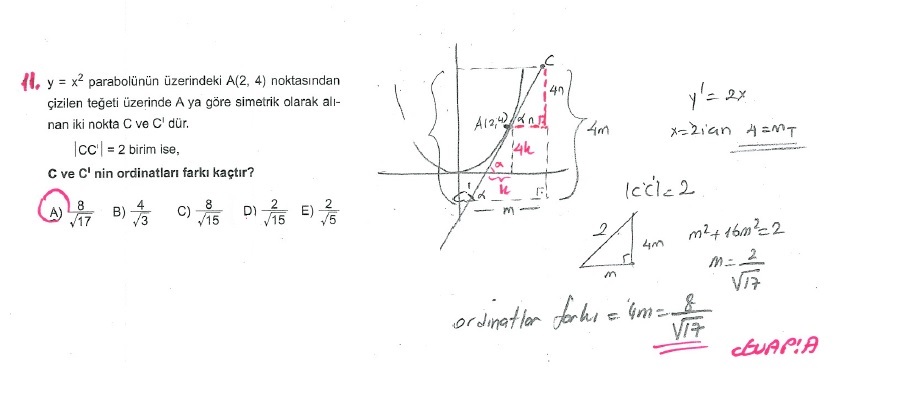 11. y = x² parabolünün üzerindeki A(2, 4) noktasından
çizilen teğeti üzerinde A ya göre simetrik olarak alı-
nan iki nokta C ve C' dür.
|CC'| = 2 birim ise,
C ve C' nin ordinatları farkı kaçtır?
A) 8/√17 B) 4/√3 C) 8/√15 D) 2/√15 E) 2/√5
C
4n
A(2,4) α n
4m
4k
α
k
C' α
m
y' = 2x
x=2 için 4=mT
|CC'|=2
2 4m
m
m²+16m²=2
m = 2/√17
ordinatlar farkı = 4m = 8/√17
CEVAP:A